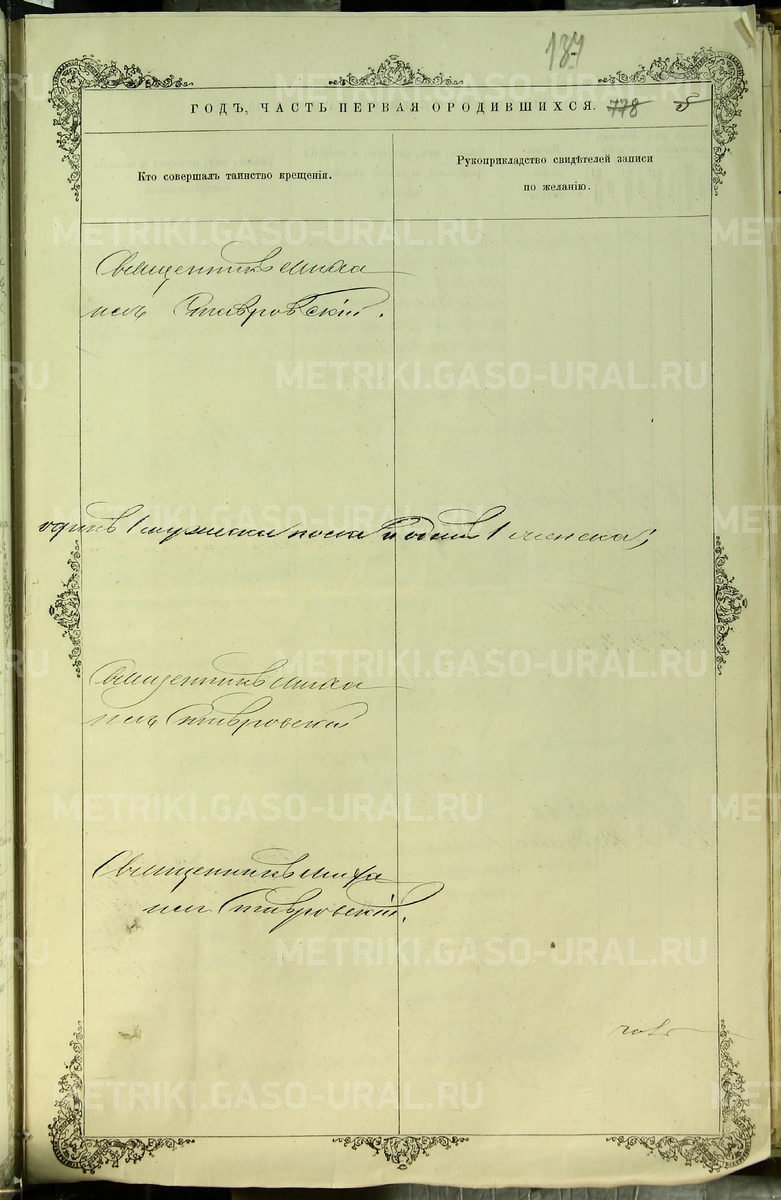 184
ГОДЪ, ЧАСТЬ ПЕРВАЯ О РОДИВШИХСЯ. 778 5
Кто совершалъ таинство крещенія.
Рукоприкладство свидѣтелей записи
по желанію.
Священникъ Миха
илъ Ставровскій.
одинъ 1 мужеска пола и одинъ 1 женска;
Священникъ Миха
илъ Ставровскій
Священникъ Миха
илъ Ставровскій.
METRIKI.GASO-URAL.RU